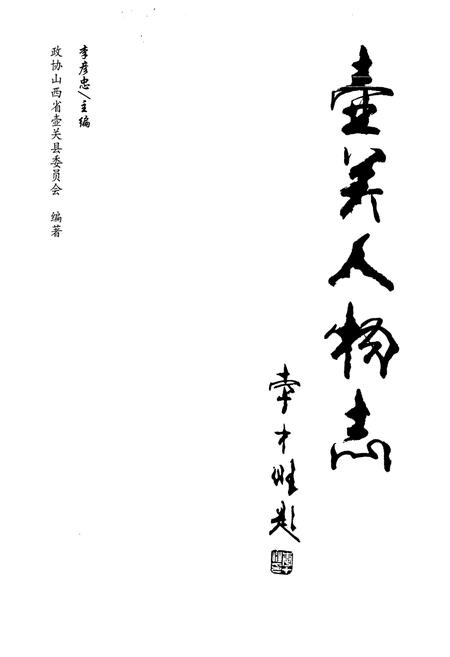 壶关人物志
李才旺题
李彦忠/主编
政协山西省壶关县委员会 编著